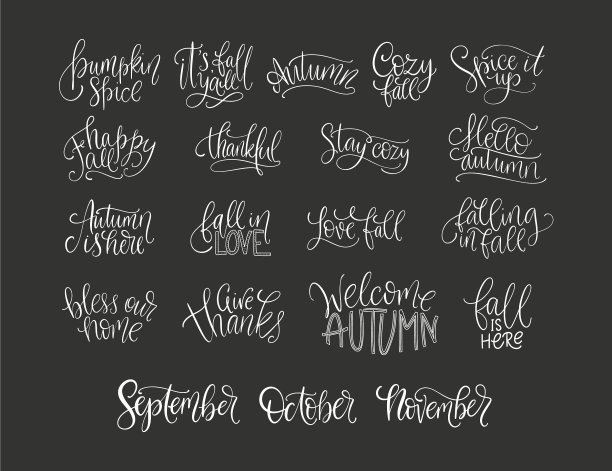 pumpkin
spice
it's fall
y'all
Autumn
Cozy
fall
Spice it
up
happy
fall
thankful
Stay cozy
Hello
autumn
Autumn
is here
fall in
LOVE
Love fall
falling
in fall
bless our
home
Give
thanks
Welcome
AUTUMN
fall
IS
HERE
September
October
November